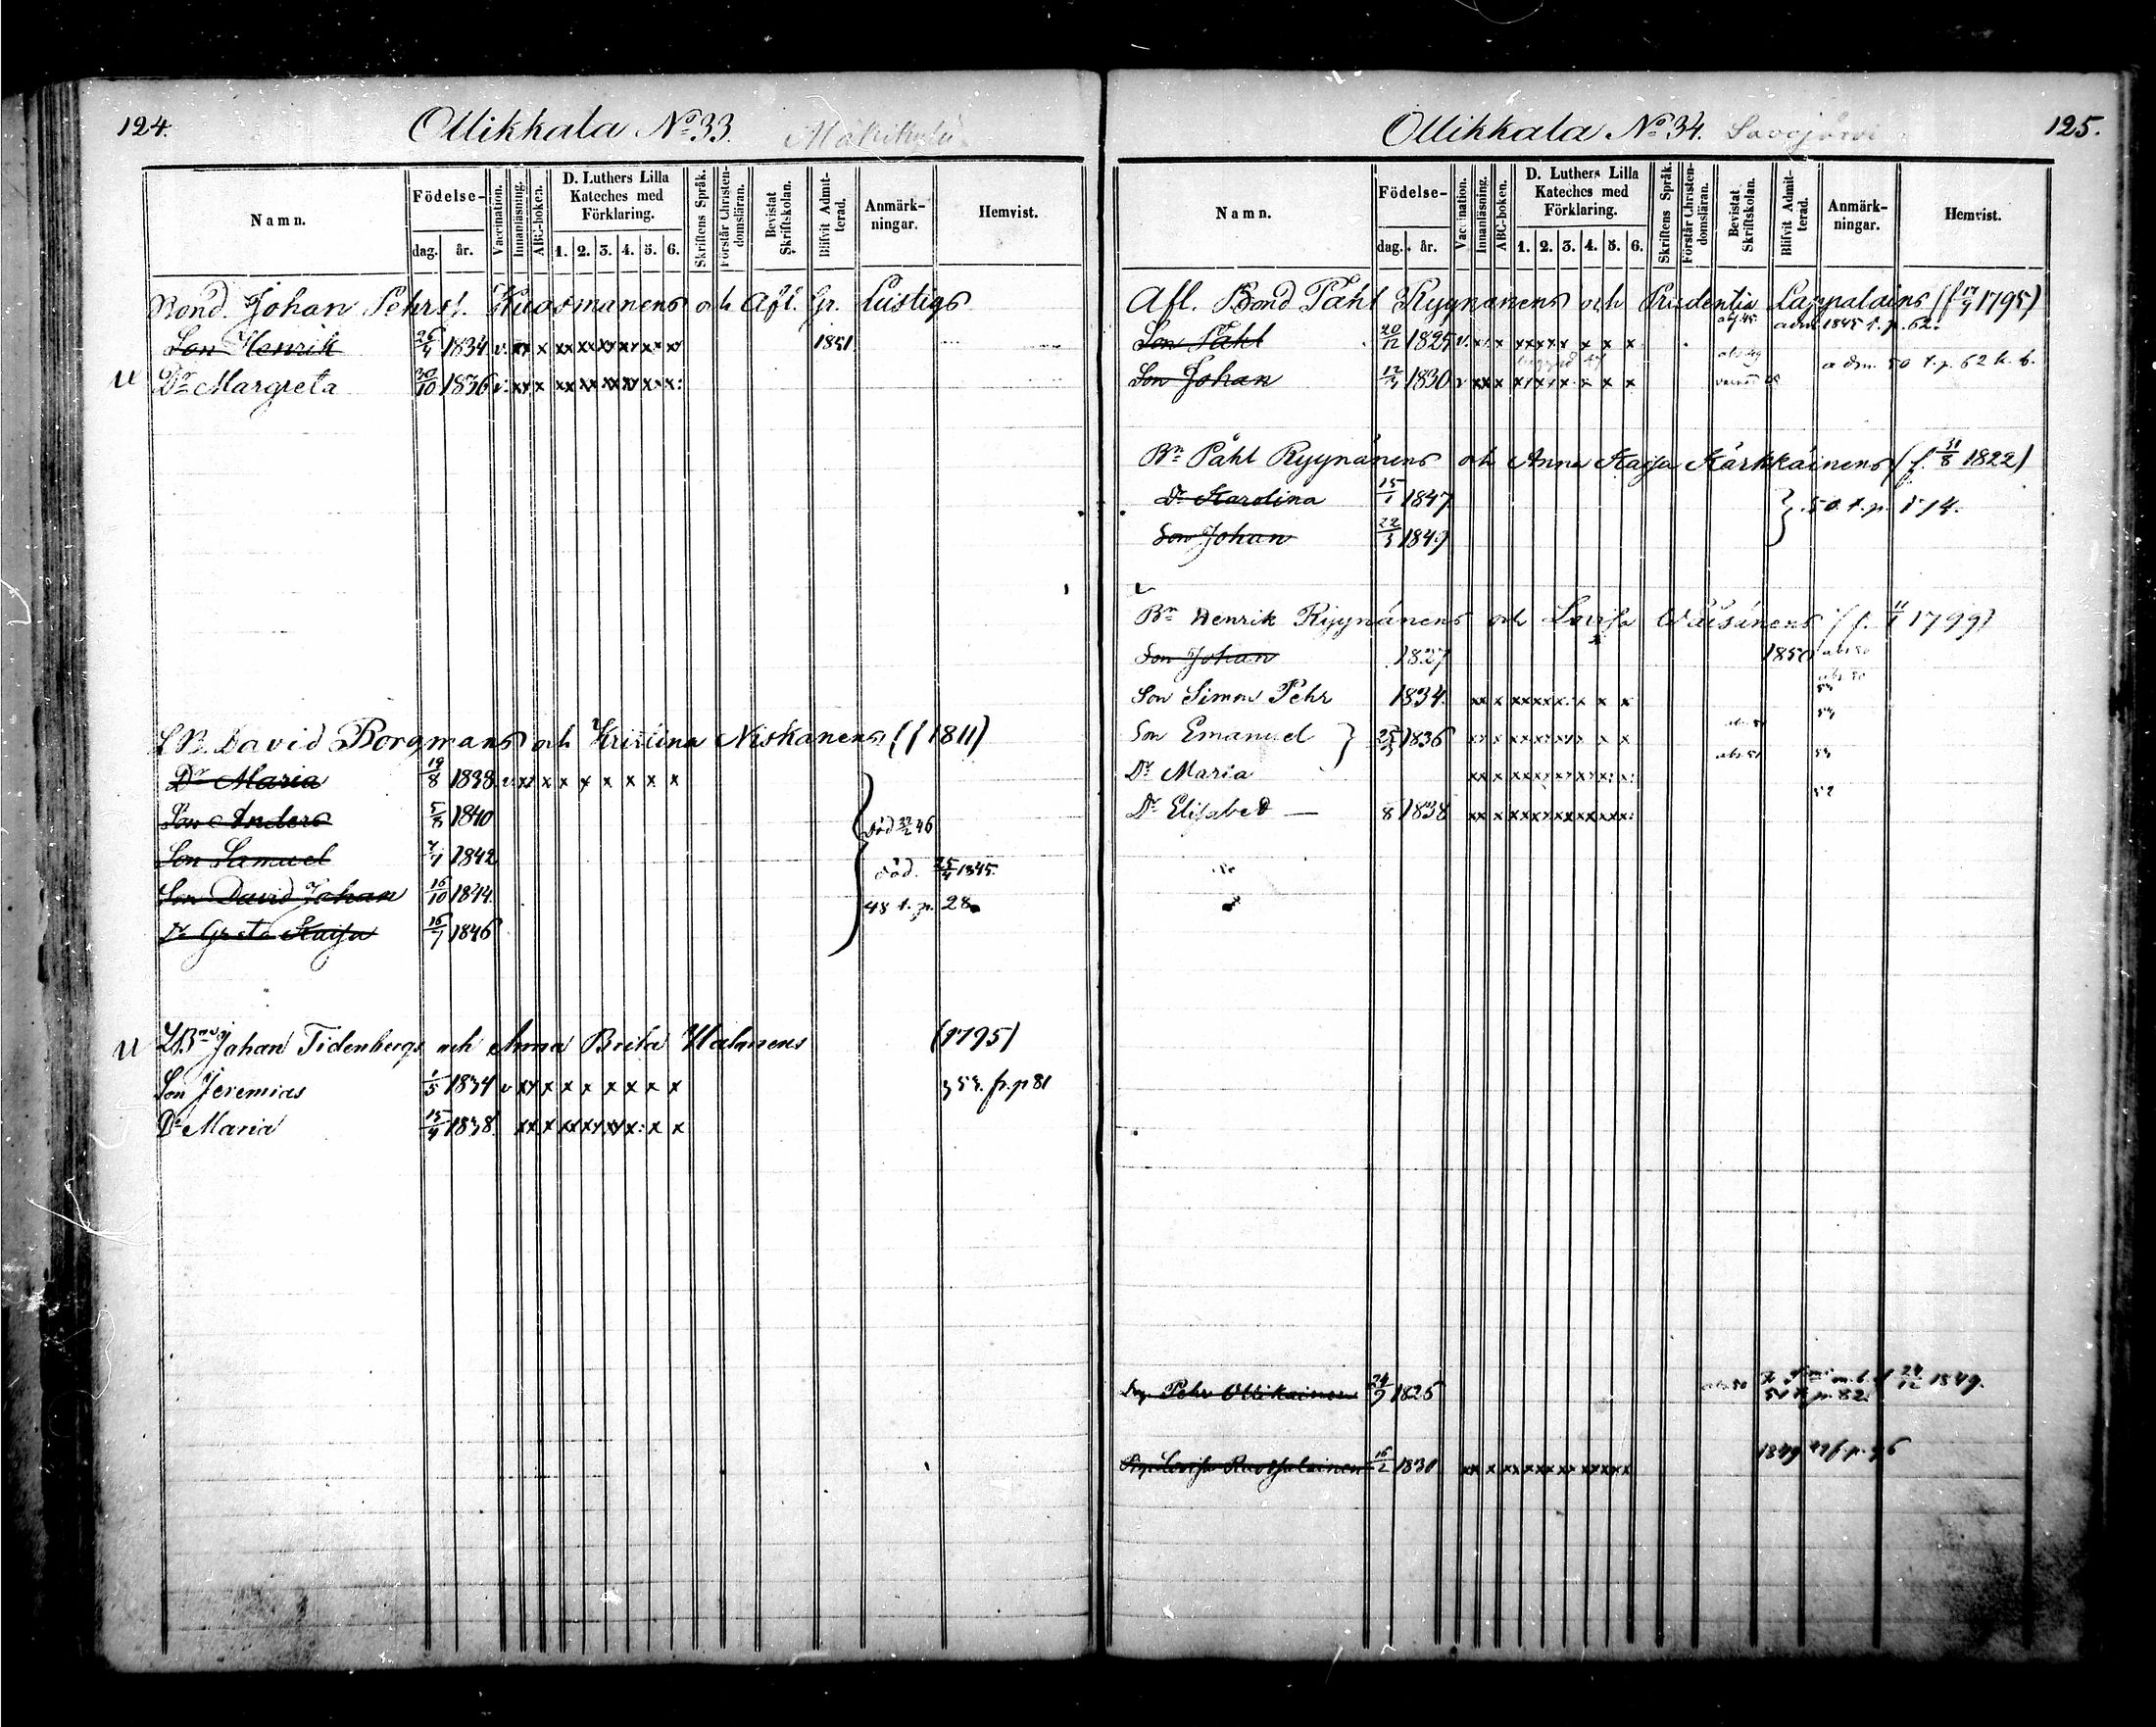 124.
Ollikkala No 33. Mäkikylä
Namn. Födelse- dag. år. Vaccination. Innanläsning. ABC-boken. D. Luthers Lilla Kateches med Förklaring. 1. 2. 3. 4. 5. 6. Skriftens Språk. Förstår Christendomsläran. Bevistat Skriftskolan. Blifvit Admitterad. Anmärkningar. Hemvist.
Bond. Johan Pehrs f. Kuosmanens och Afl. Gr. Lustigs
Son Henrik 1834 v. xx x xx xx xx xx xx xx 1851
Dr Margreta 30/10 1836 v. xx x xx xx xx xx xx x:
L.B. David Borgmans och Kristina Niskanens (f 1811)
Dr Maria 19/8 1838 v. xx x x x x x x x
Son Anders 5/8 1840 död 46
Son Samuel 1842 död. 25/4 1845.
Son David Johan 16/10 1844. 48 t. p. 28
Dr Greta Kaisa 16/7 1846
Johan Tidenbergs och Anna Brita Halonens (1795)
Son Jeremias 1/5 1834 v xx x x x x x x x 53. fr. p 81
Dr Maria 1838. xx x xx xx xx x: x x
125.
Ollikkala No 34. Savojärvi
Namn. Födelse- dag. år. Vaccination. Innanläsning. ABC-boken. D. Luthers Lilla Kateches med Förklaring. 1. 2. 3. 4. 5. 6. Skriftens Språk. Förstår Christendomsläran. Bevistat Skriftskolan. Blifvit Admitterad. Anmärkningar. Hemvist.
Afl. Bond Påhl Ryynänens och Prudentia Lappalains (f 1795)
Son Påhl 20/12 1825 v. xx x xx xx x x x x adm 1845 t. p. 62.
Son Johan 1830 v xx x xx xx x x x x adm. 50 t. p. 62 h. b.
Bn Påhl Ryynänens och Anna Kaisa Kärkkäinens (f. 31/8 1822)
Dr Karolina 15/1 1847 } 50. t. p. 174.
Son Johan 1849
Bn Henrik Ryynänens och Lovisa Wäisänens (f. 1799)
Son Johan 1827 1850 abs 50
Son Simon Pehr 1834. xx x xx xx x x x x
Son Emanuel } 25/3 1836 xx x xx xx xx x x
Dr Maria xx x xx xx xx xx x: x:
Dr Elisabet — 8 1838 xx x xx xx xx xx xx x:
Pehr Ollikainen 24/9 1825 abs 50 24/12 1849. 51 p. 82.
Lovisa Ruotsalainen 16/2 1830 xx x xx xx xx xx xx xx 1849